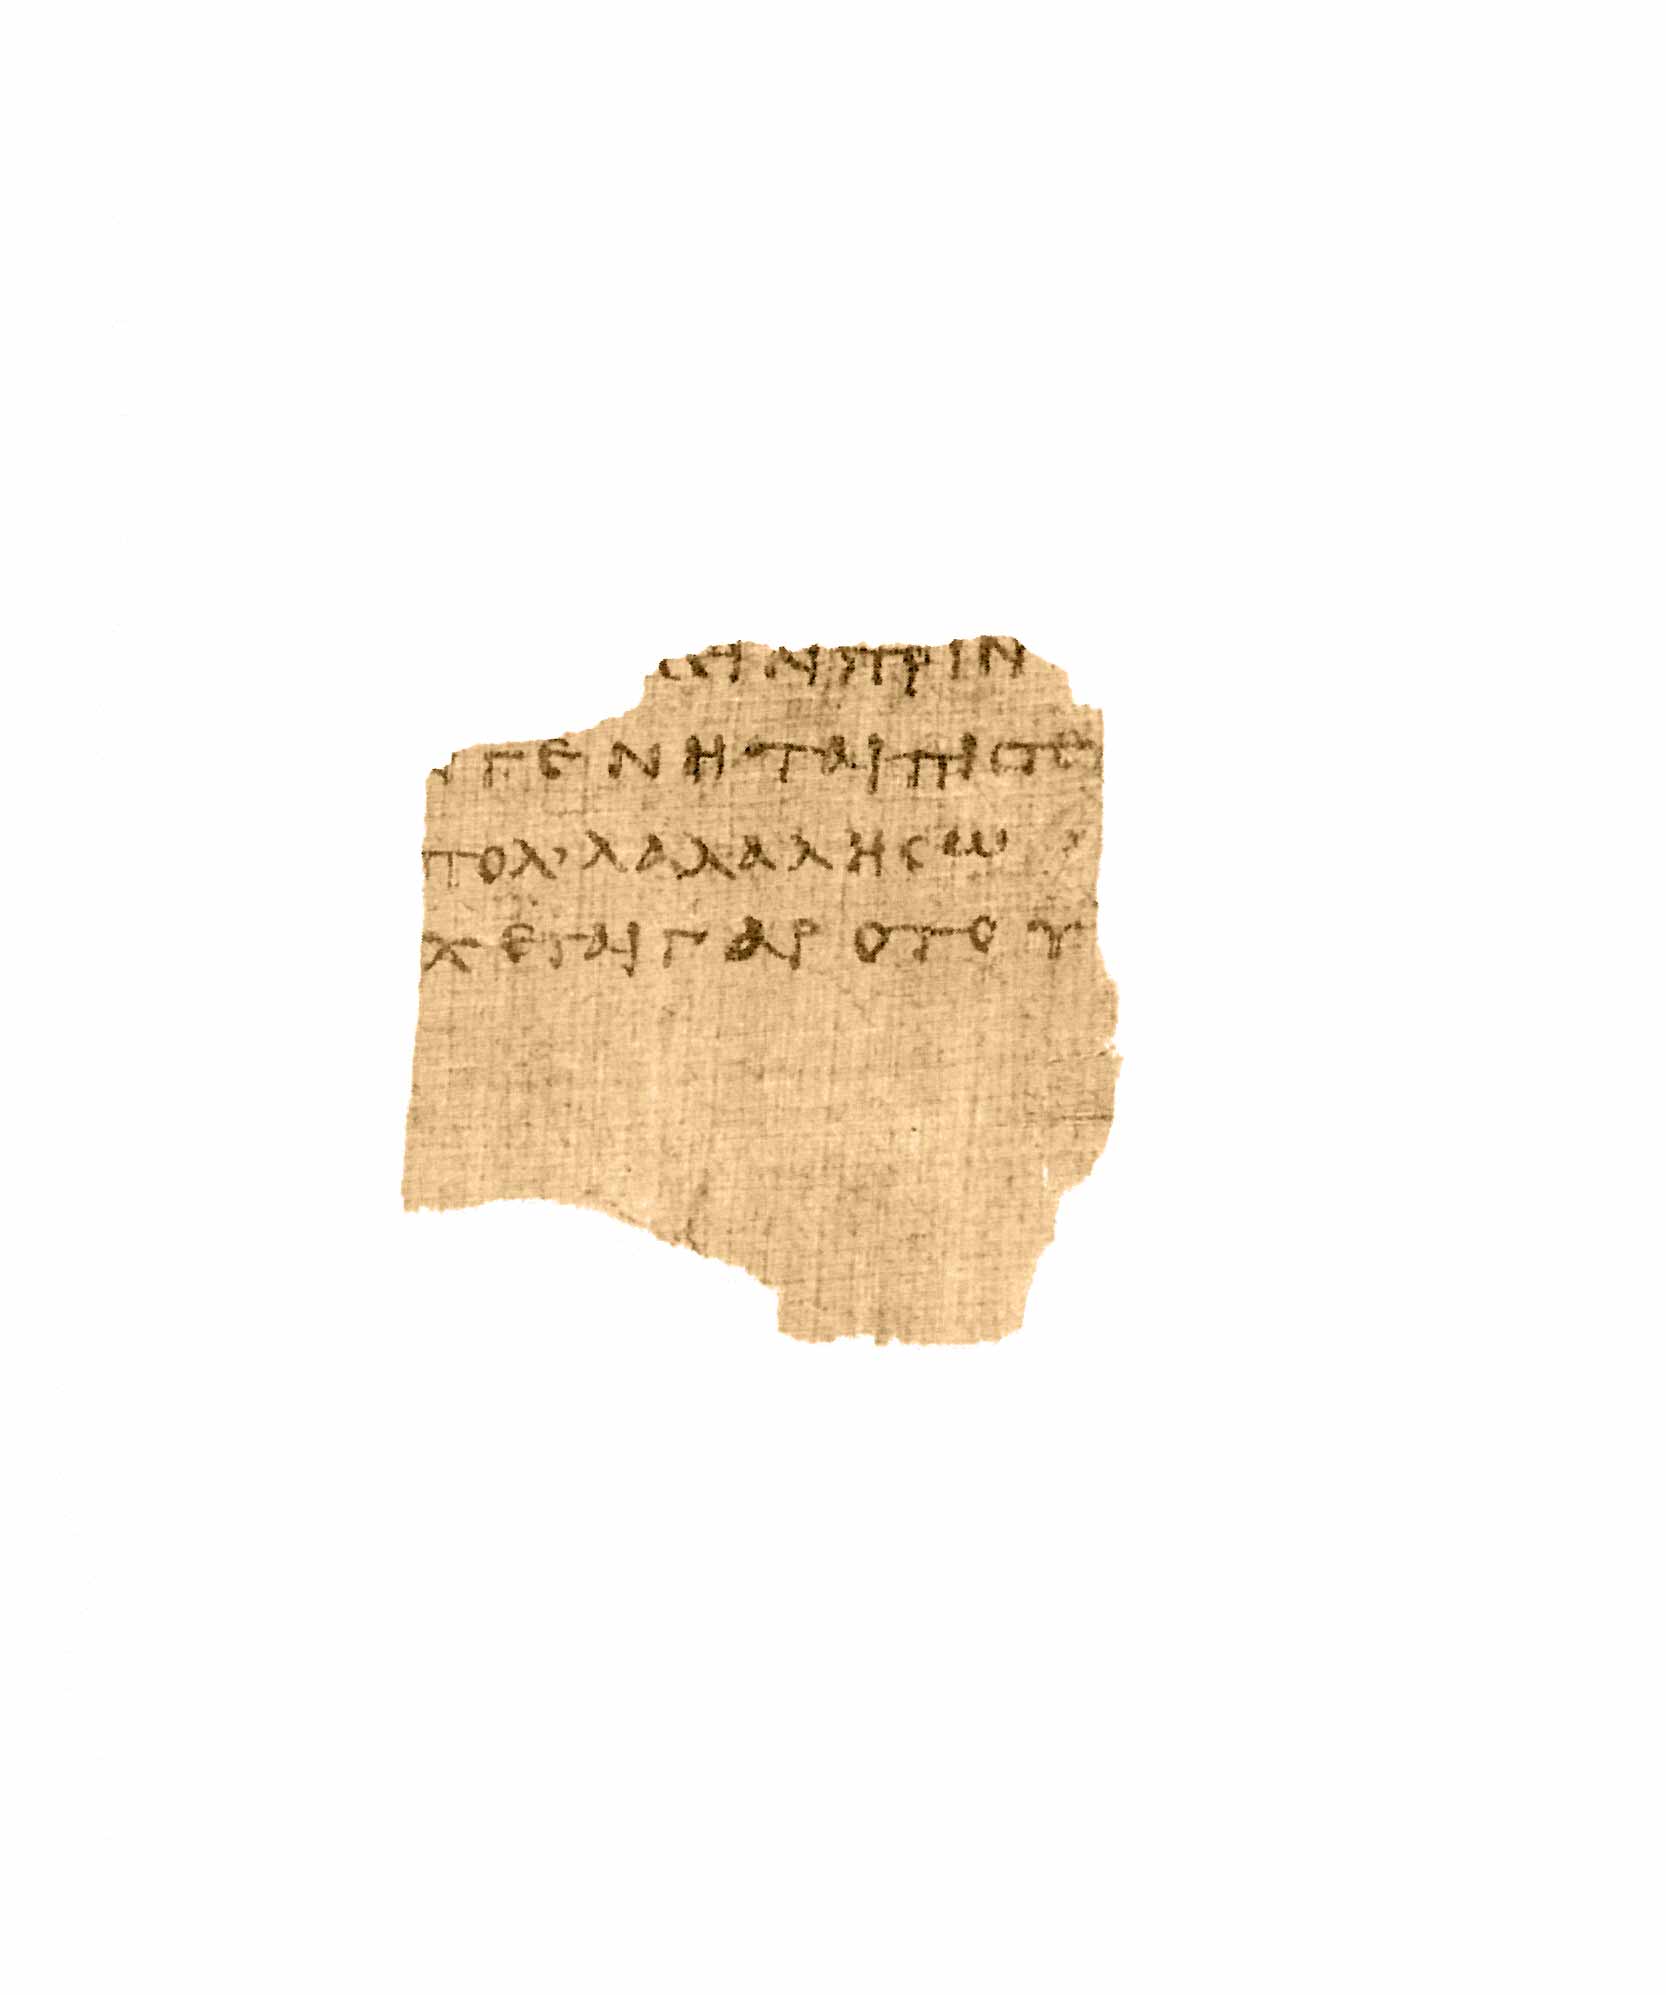 ΠΡΙΝ
Ν ΓΕΝΗΤΑΙ ΠΙϹΤΕ
ΠΟΛ’ΛΑ ΛΑΛΗϹΩ
ΧΕΤΑΙ ΓΑΡ Ο ΤΟΥ